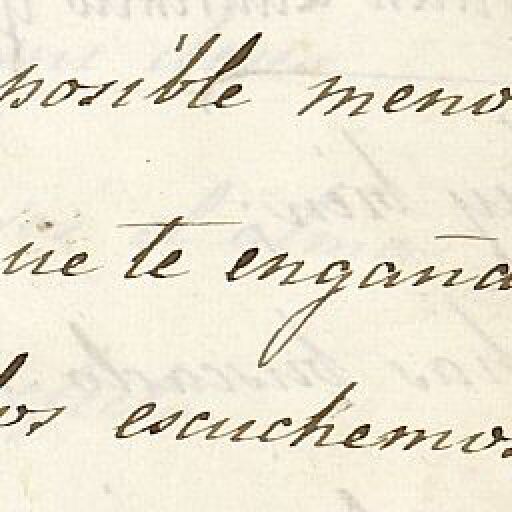 posible meno
ue te engaña
los escuchemos